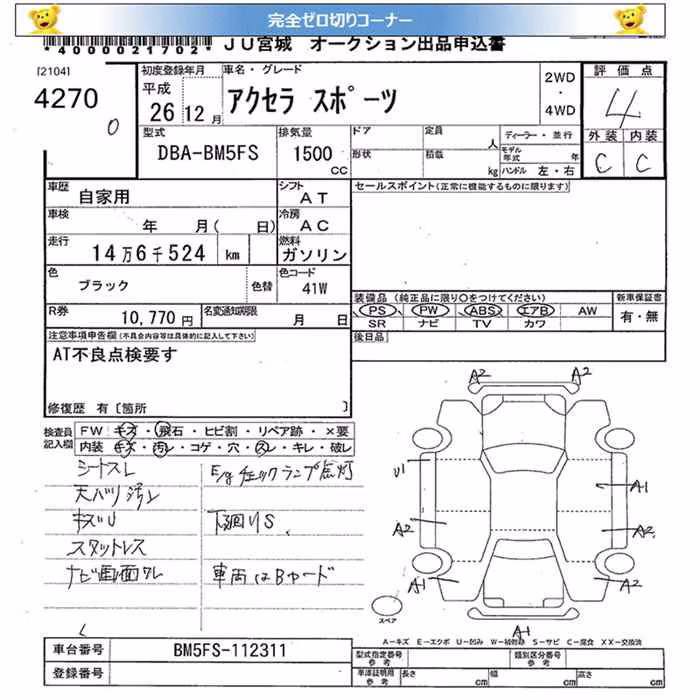 完全ゼロ切りコーナー
*4000021702* JU宮城 オークション出品申込書
[2104]
4270
0
初度登録年月
平成
26 12月
車名・グレード
アクセラ スポーツ
2WD
・
4WD
評価点
4
外装 内装
C C
型式
DBA-BM5FS
排気量
1500
CC
ドア
定員
人
形状
積載
kg
ディーラー・並行
モデル年式 年
ハンドル 左・右
車歴
自家用
シフト
AT
車検
年 月( 日)
冷房
AC
走行
14万6千524 km
燃料
ガソリン
色
ブラック
色替
色コード
41W
R券
10,770円
名変通知期限
月 日
セールスポイント(正常に機能するものに限ります)
装備品(純正品に限り○をつけてください)
PS PW ABS エアB AW
SR ナビ TV カワ
新車保証書
有・無
後日品
注意事項申告欄(不具合内容等は具体的に記入して下さい)
AT不良点検要す
修復歴 有[箇所 ]
検査員記入欄
FW キズ・飛石・ヒビ割・リペア跡・×要
内装 キズ・汚レ・コゲ・穴・スレ・キレ・破レ
シートスレ
天バリ汚レ
キズU
スタットレス
ナビ画面ワレ
E/gチェックランプ点灯
下廻りS
車両はBヤード
A2 A2
U1
A1
A2 A2
U1 A2
A1
スペア
A-キズ E-エクボ U-凹み W-補修跡 S-サビ C-腐食 XX-交換済
車台番号 BM5FS-112311
登録番号
型式指定番号
参考
類別区分番号
参考
車庫証明用
参考
長さ cm 幅 cm 高さ cm